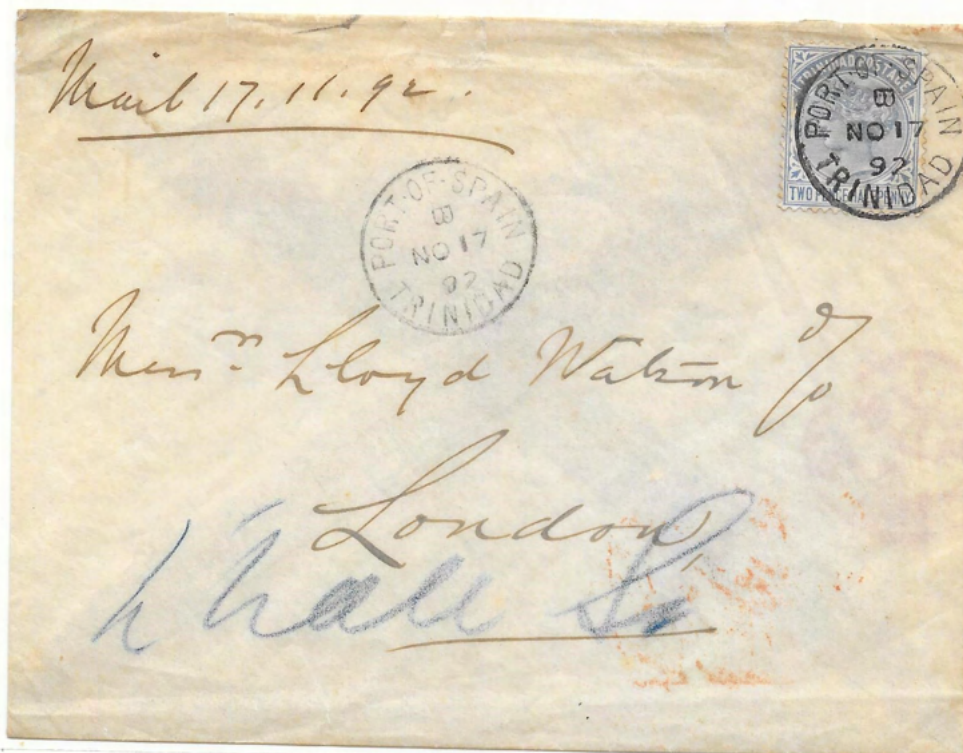 Mail 17.11.92.
TRINIDAD POSTAGE
TWO PENCE HALFPENNY
PORT-OF-SPAIN
B
NO 17
92
TRINIDAD
PORT-OF-SPAIN
B
NO 17
92
TRINIDAD
Messrs Lloyd Watson
London